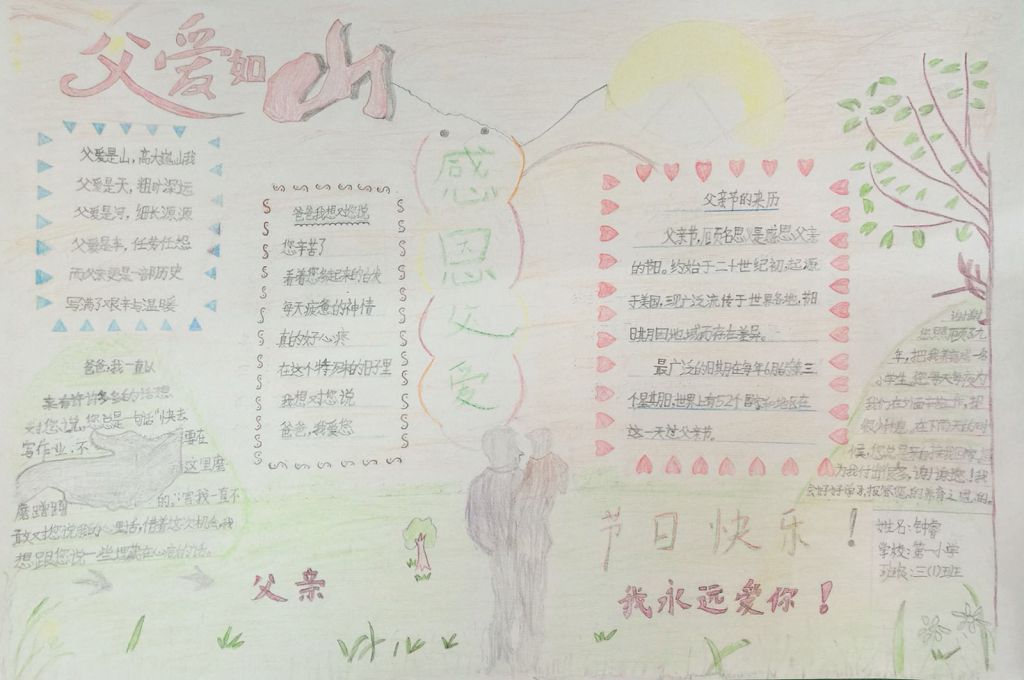 父爱如山
父爱是山，高大巍峨
父爱是天，粗旷深远
父爱是河，细长源源
父爱是车，任劳任怨
而父亲更是一部历史
写满了艰辛与温暖
爸爸我想对您说
您辛苦了
看着您多起来的白发
每天疲惫的神情
真的好心疼
在这个特殊的日子里
我想对您说
爸爸，我爱您
感恩父爱
父亲节的来历
父亲节，顾名思义是感恩父亲
的节日。约始于二十世纪初，起源
于美国，现广泛流传于世界各地，节
日日期因地域而存在差异。
最广泛的日期在每年6月的第三
个星期日，世界上有52个国家和地区在
这一天过父亲节。
爸爸，我一直以
来有许许多多的话想
对您说，您总是一句话“快去
写作业，不要在
这里磨
磨蹭蹭的。”害我一直不
敢对您说我的心里话，借着这次机会，我
想跟您说一些埋藏在心底的话。
谢谢
您照顾了九
年，把我养育成一名
小学生，您每天
在下雨天的时
候，您总是
为我付出很多，谢谢您！我
会好好学习，报答您的养育之恩的。
姓名：钟睿
学校：第一小学
班级：三(1)班
节日快乐！
父亲
我永远爱你！